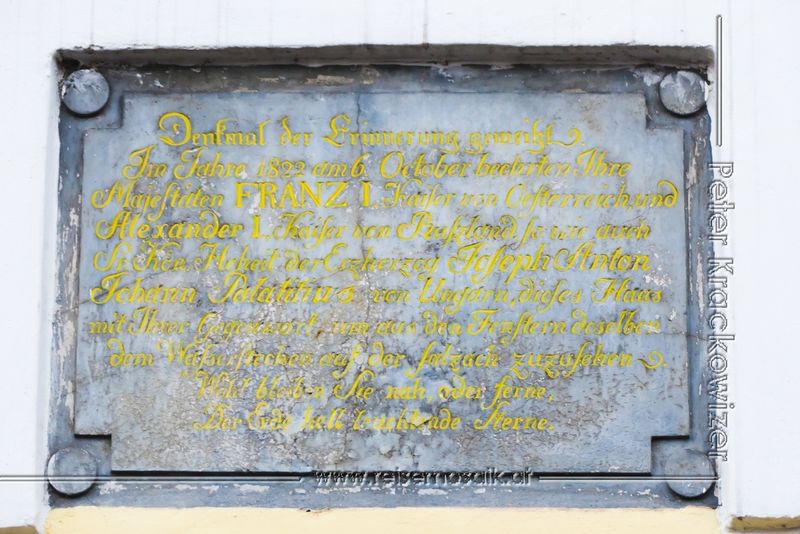 Denkmal der Erinnerung geweiht.
Im Jahre 1822 am 6. October beehrten Ihre
Majestäten FRANZ I. Kaiser von Oesterreich, und
Alexander I. Kaiser von Rußzland, so wie auch
Sr. Kön. Hoheit der Erzherzog Joseph Anton
Johann Palatinus von Ungarn, dieses Haus
mit Ihrer Gegenwart, um aus den Fenstern deselben
dem Wasserstechen auf der salzach zuzusehen.
Wohl bleiben Sie nah, oder ferne,
Der Erde hell leuchtende Sterne.
Peter Krackowizer
www.reisemosaik.at